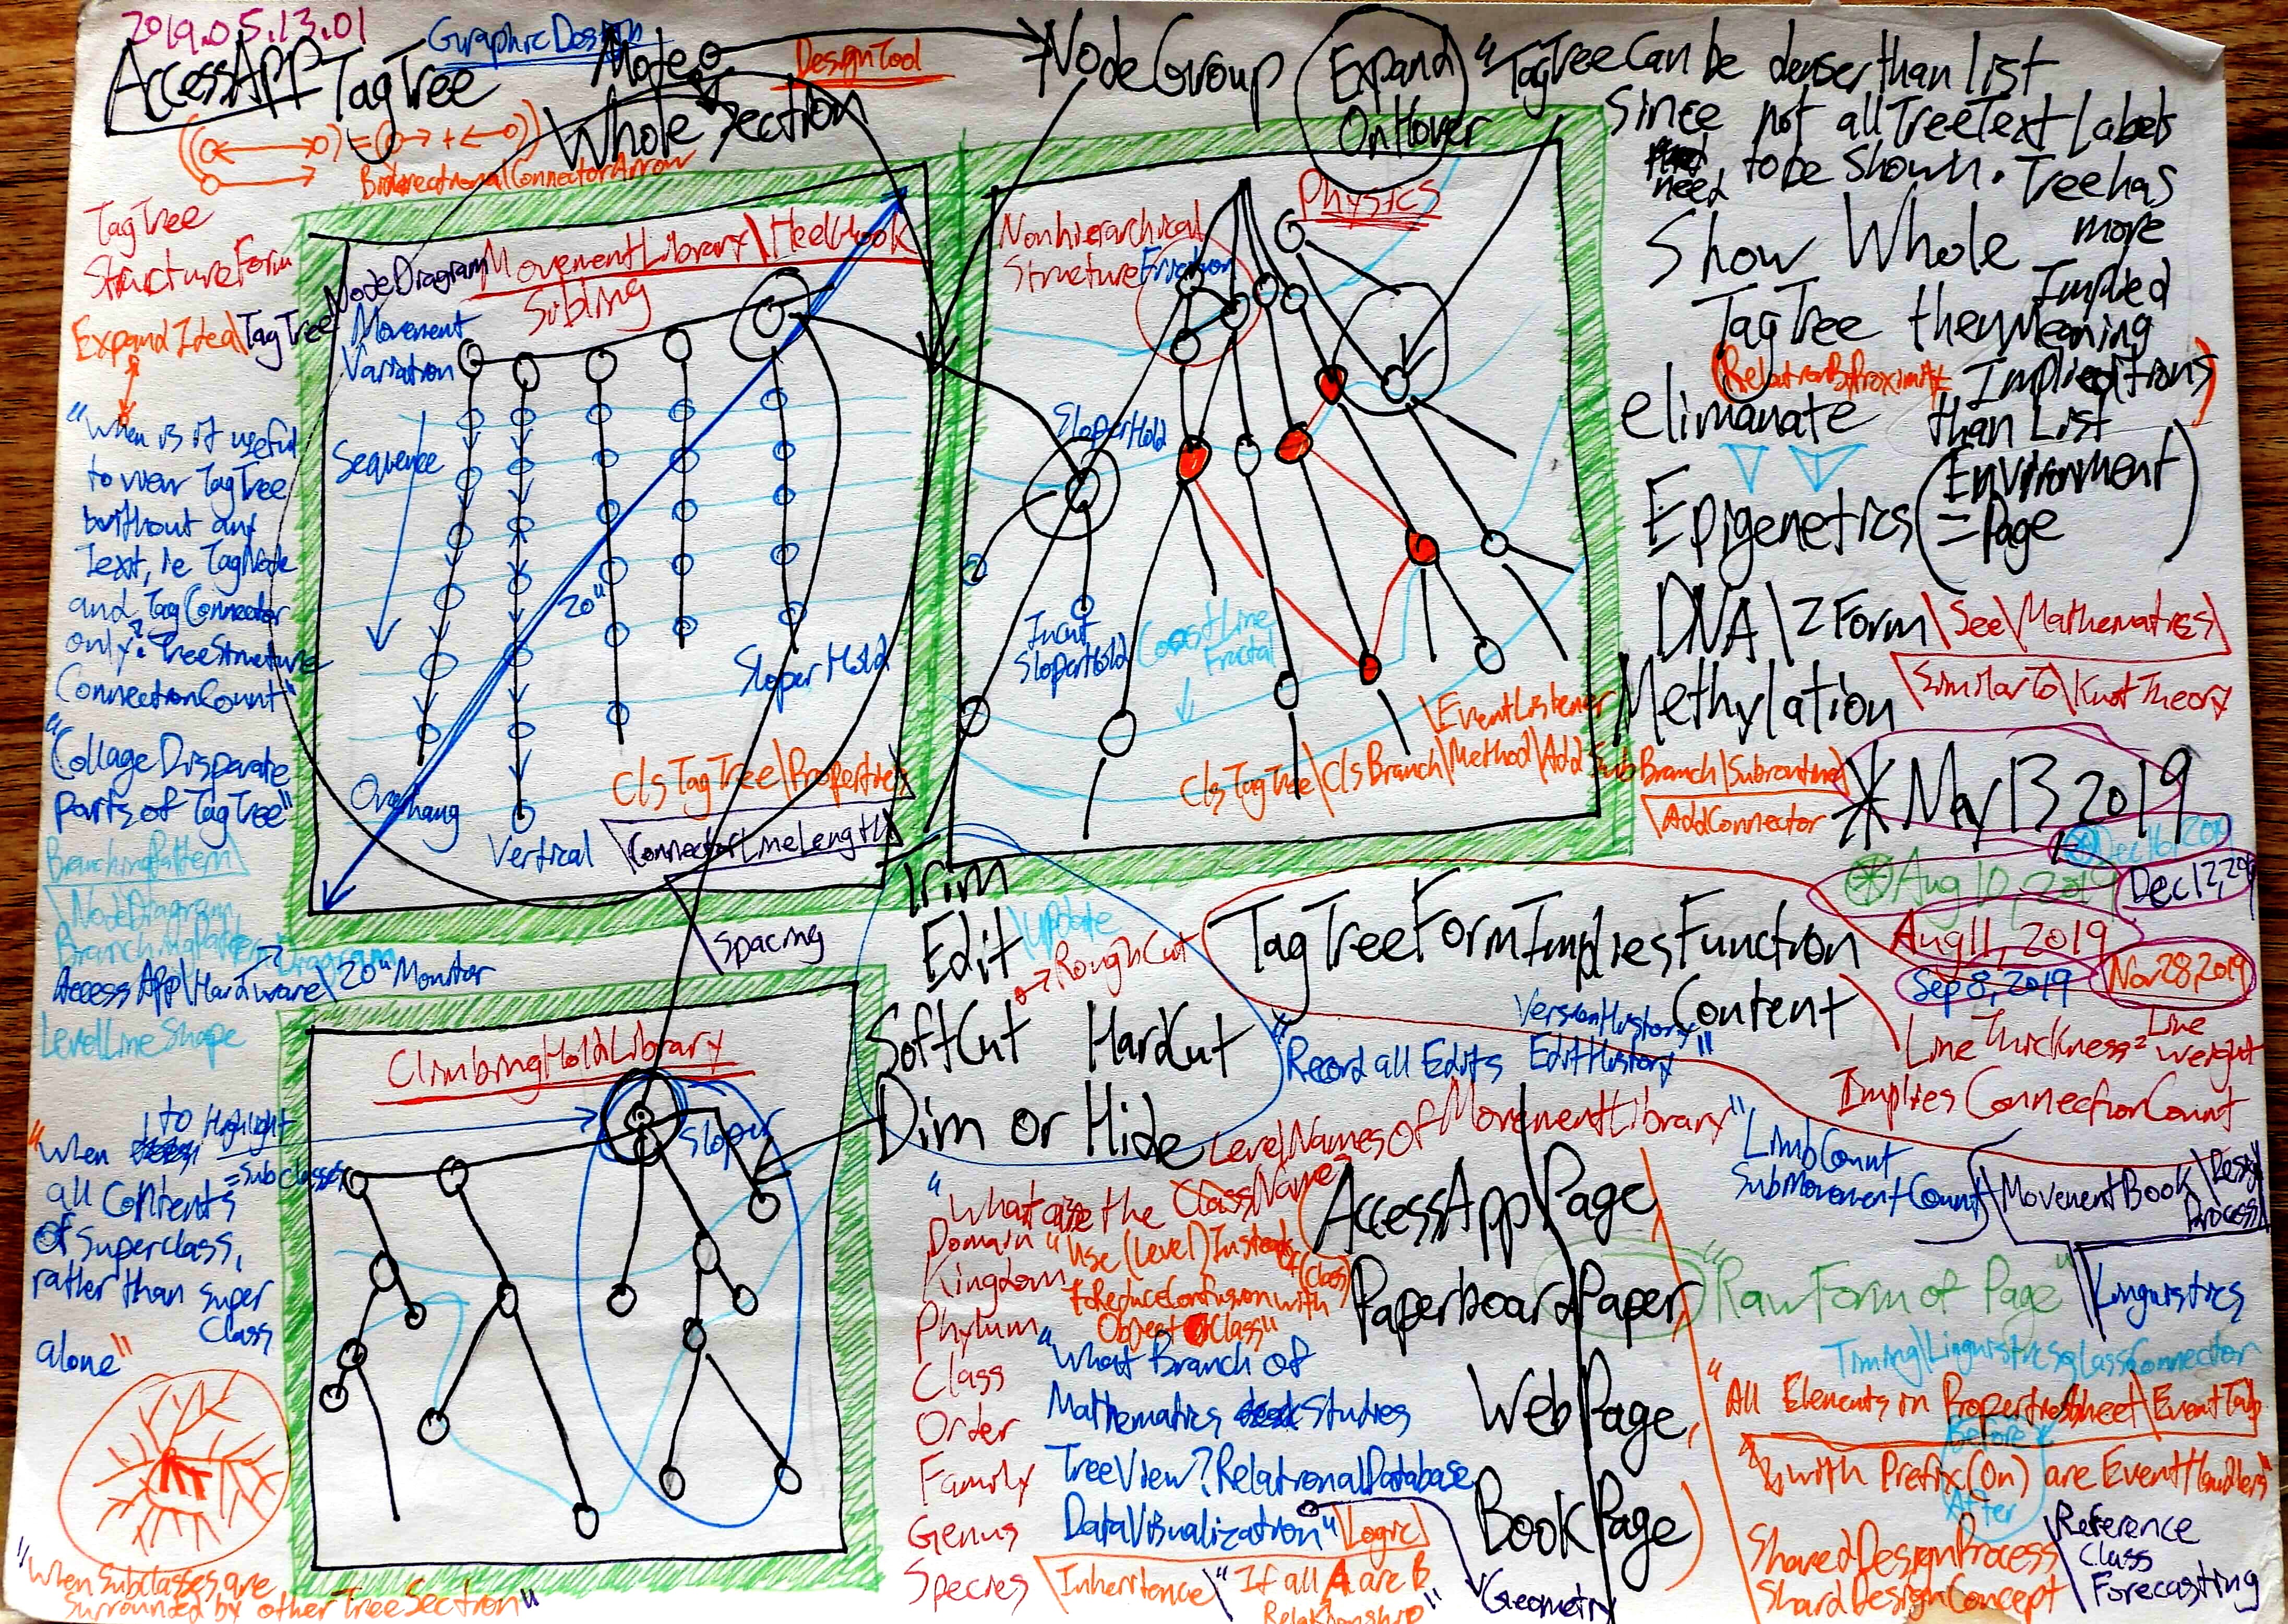 2019.05.13.01
AccessAPP TagTree
GraphicDesign
Mote
Whole Section
DesignTool
NodeGroup
Expand
OnHover
"TagTree Can be denser than list
Since not all TreeText Labels
need to be Shown. Tree has
more
Implied
Meaning
Implications
than List
Show Whole
TagTree then
(RelationByProximity
elimanate
Epigenetics (Environment
= Page)
DNA\Z Form\See\Mathematics
\SimilarTo\KnotTheory
Methylation
BidirectionalConnectorArrow
TagTree
StructureForm
ExpandIdea\TagTree
"When is it useful
to view TagTree
without any
Text, ie TagNode
and TagConnector
only? TreeStructure
ConnectionCount"
"Collage Disparate
parts of TagTree"
BranchingPattern
\NodeDiagram
BranchingPattern Diagram
AccessApp\Hardware\20" Monitor
LevelLineShape
NodeDiagram
MovementLibrary\HeelHook
Sibling
Movement
Variation
Sequence
20"
SloperHold
Overhang
Vertical
ClsTagTree\Properties
\ConnectorLineLength
\Spacing
Nonhierarchical
Structure
Friction
Physics
SloperHold
Incut
SloperHold
CoastLine
Fractal
\EventListener
ClsTagTree\ClsBranch\Method\Add SubBranch\Subroutine
\AddConnector
* May 13 2019
Dec 16, 2019
Aug 10, 2019
Dec 12, 2019
Aug 11, 2019
Sep 8, 2019
Nov 28, 2019
Trim
Edit \Update
→RoughCut
SoftCut HardCut
Dim or Hide
TagTreeFormImpliesFunction
Content
VersionHistory
"Record all Edits EditHistory"
\Line Thickness = Line Weight
Implies ConnectionCount
ClimbingHoldLibrary
Sloper
"When to Highlight
=Subclasses
all Contents
of Superclass,
rather than super
Class
alone"
"When Subclasses are
surrounded by other TreeSection"
LevelNamesOfMovementLibrary"
"What are the ClassName
Domain
Kingdom
Phylum
Class
Order
Family
Genus
Species
"Use (Level) Instead of (Class)
toReduceConfusion with
Object Class"
"What Branch of
Mathematics Studies
TreeView? RelationalDatabase
DataVisualization" \Logic
\Inheritence\"If all A are B
Relationship"
Geometry
(AccessApp\Page
Paperboard\Paper
Web\Page
Book\Page)
"LimbCount
SubMovementCount\MovementBook\Design
Process
\Linguistics
"RawForm of Page"
Timing\Linguistics\ClassConnector
"All Elements in PropertiesSheet\EventTab
Before
with Prefix (On) are EventHandlers"
After
SharedDesignProcess
SharedDesignConcept
\Reference
Class
Forecasting